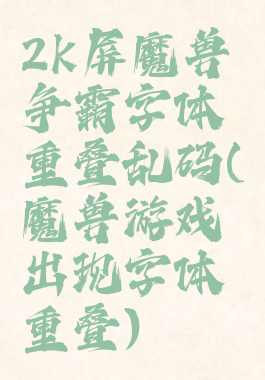 2k屏魔兽
争霸字体
重叠乱码(
魔兽游戏
出现字体
重叠)